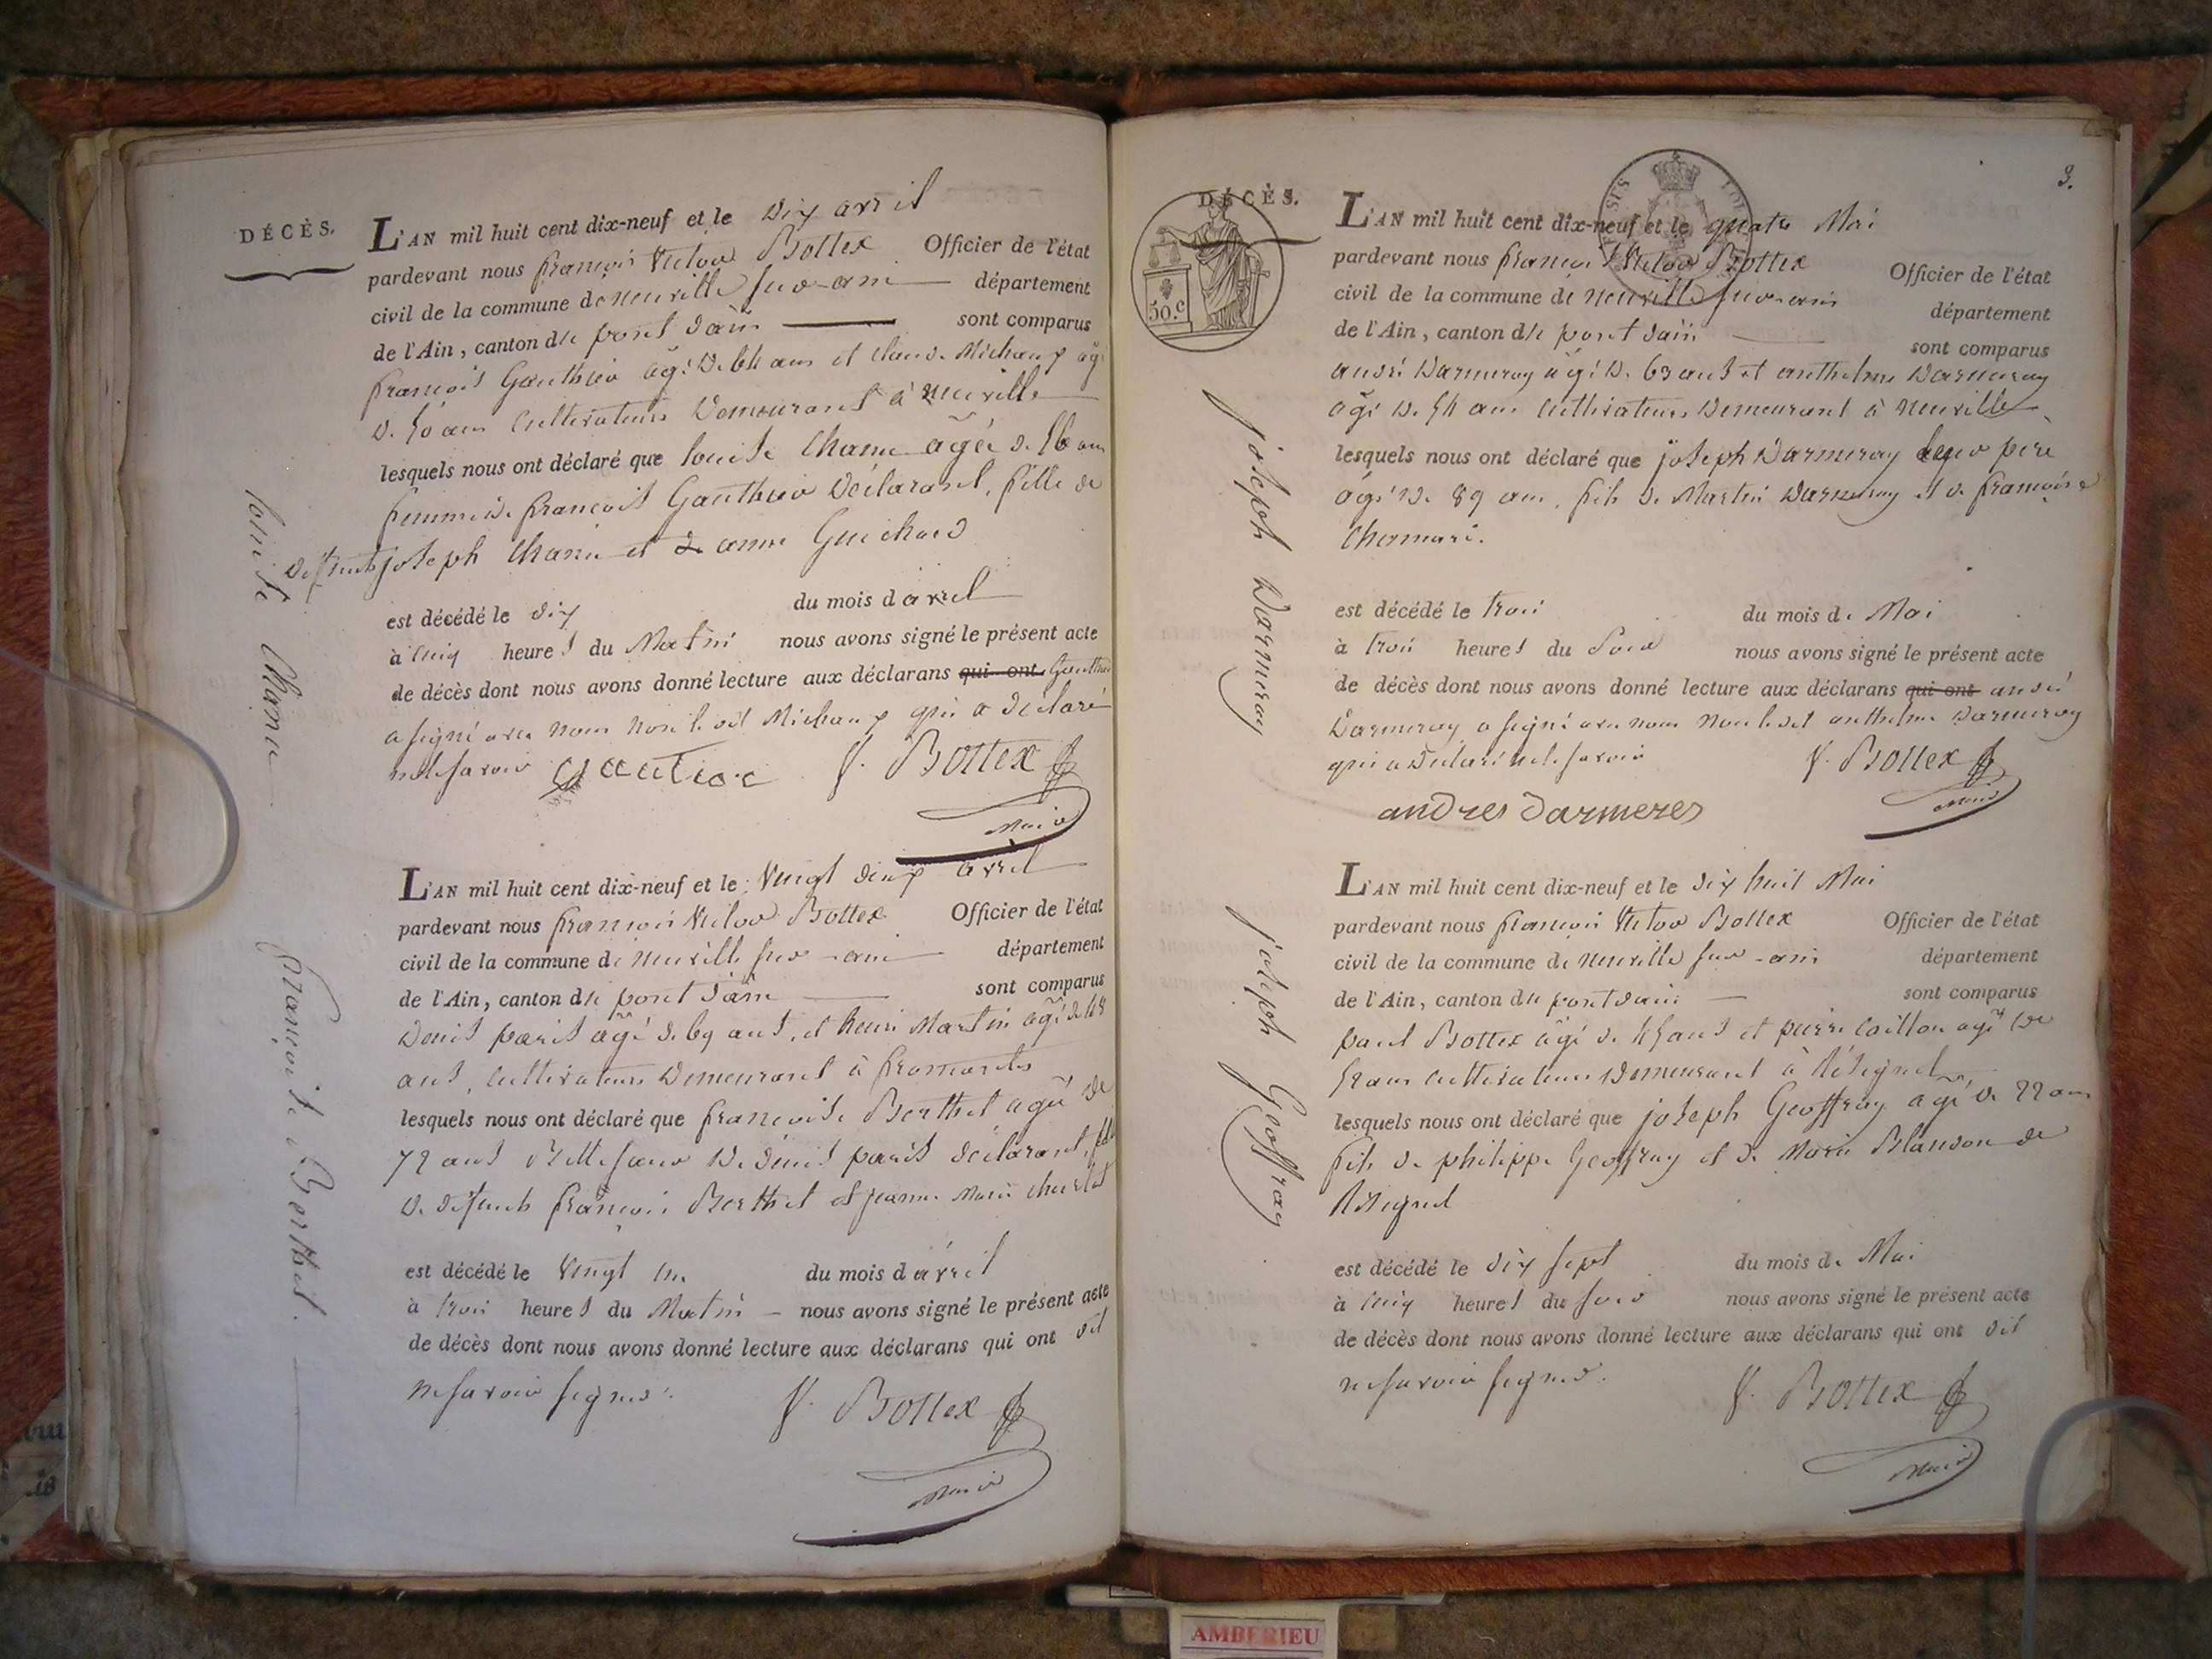 DÉCÈS.
L'AN mil huit cent dix-neuf et le dix avril
pardevant nous françois Victor Bottex Officier de l'état
civil de la commune de neuville sur-ain département
de l'Ain, canton du pont dain sont comparus
françois Gauthier agé de 64 ans et claude Michaux agé
de 50 ans cultivateurs demeurant à neuville
lesquels nous ont déclaré que louise Chanu agée de 56 ans
femme de françois Gauthier déclarant, fille de
defunts joseph Chanu et de anne Guichard
est décédé le dix du mois d avril
à cinq heures du Matin nous avons signé le présent acte
de décès dont nous avons donné lecture aux déclarans qui ont Gauthier
a signé avec nous non le dit Michaux qui a déclaré
ne le savoir gautier f. Bottex
Maire
louise Chanu
L'AN mil huit cent dix-neuf et le Vingt deux avril
pardevant nous françois Victor Bottex Officier de l'état
civil de la commune de neuville sur-ain département
de l'Ain, canton du pont dain sont comparus
denis paris agé de 69 ans, et henri Martin agé de 48
ans, cultivateurs demeurant à fromentes
lesquels nous ont déclaré que françoise Berthet agée de
72 ans Belle soeur de denis paris déclarant, fille
de defunts françois Berthet et jeanne Marie
est décédé le Vingt un du mois d avril
à trois heures du Matin nous avons signé le présent acte
de décès dont nous avons donné lecture aux déclarans qui ont dit
ne savoir signer. f. Bottex
Maire
françoise Berthet.
3.
DÉCÈS.
50.c
L'AN mil huit cent dix-neuf et le quatre Mai
pardevant nous françois Victor Bottex Officier de l'état
civil de la commune de neuville sur-ain département
de l'Ain, canton du pont dain sont comparus
andré Darmeray agé de 63 ans et anthelme Darmeray
agé de 54 ans cultivateurs demeurant à neuville
lesquels nous ont déclaré que joseph Darmeray leur père
agé de 89 ans, fils de Martin Darmeray et de françoise
est décédé le trois du mois de Mai
à trois heures du Soir nous avons signé le présent acte
de décès dont nous avons donné lecture aux déclarans qui ont andré
Darmeray a signé avec nous non le dit anthelme Darmeray
qui a déclaré ne le savoir f. Bottex
andres darmeres Maire
joseph Darmeray
L'AN mil huit cent dix-neuf et le dix huit Mai
pardevant nous françois Victor Bottex Officier de l'état
civil de la commune de neuville sur-ain département
de l'Ain, canton du pont dain sont comparus
paul Bottex agé de 45 ans et pierre agé de
52 ans cultivateurs demeurant à
lesquels nous ont déclaré que joseph Geoffray agé de 22 ans
fils de philippe Geoffray et de Marie Blandon de
est décédé le dix sept du mois de Mai
à cinq heures du soir nous avons signé le présent acte
de décès dont nous avons donné lecture aux déclarans qui ont dit
ne savoir signer. f. Bottex
Maire
joseph Geoffray
AMBERIEU